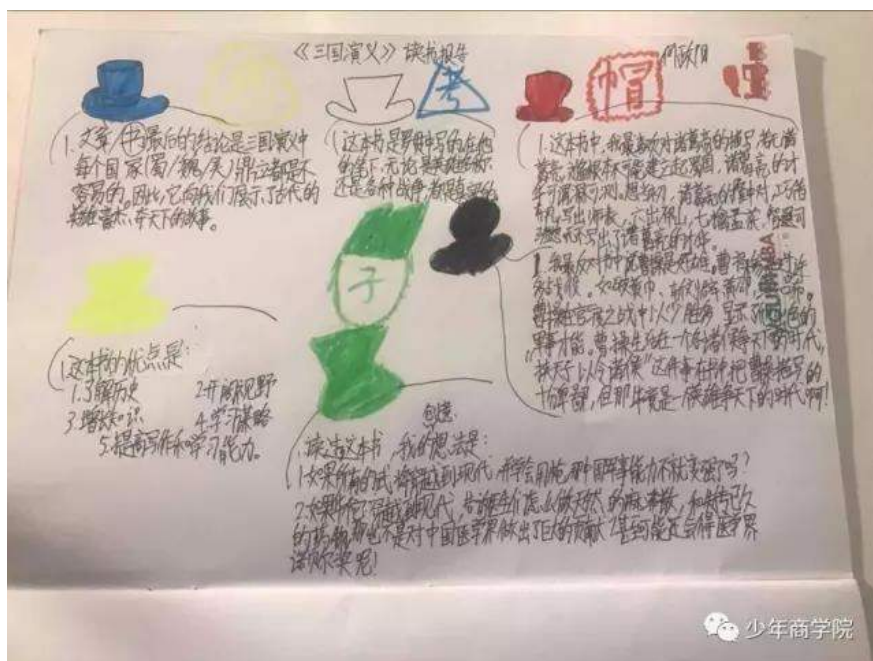 《三国演义》读书报告
六
思
考
帽
1.文章/书最后的结论是三国演义中
每个国家(蜀/魏/吴)鼎立都是不
容易的。因此,它向我们展示了古代的
英雄豪杰、夺天下的故事。
1.这本书是罗贯中写的,在他
的笔下,无论是英雄
还是各种战争,都是
1.这本书中,我最喜欢对诸葛亮的描写,若无诸
葛亮,刘备根本不可能建立起蜀国,诸葛亮的才
华可谓深不可测。想当初,诸葛亮的隆中对,巧治
写出师表,六出祁山,七擒孟获,
无不写出了诸葛亮的才华。
2.我最反对书中说曹操是奸雄。曹
如破黄巾、
曹操在官渡之战中以少胜多,显示了出色的
军事才能。曹操生活在一个各诸侯争天下的时代,
“挟天子以令诸侯”这件事在书中把曹操描写的
十分卑鄙,但那毕竟是一个英雄争天下的时代啊!
子
1.这本书的优点是:
1.了解历史
2.开阔视野
3.增长知识
4.学习谋略
5.提高写作和学习能力。
1.读过这本书,我的想法是:
1.如果所有的武将穿越到现代,并学会用枪,那中国军事能力不就变强了吗?
2.如果华佗穿越到现代,告诉医生们怎么做天然的麻沸散,和失传已久
的药物,那也不是对中国医学界做出了巨大的贡献?甚至可能还会得医学界
诺贝尔奖呢!
少年商学院